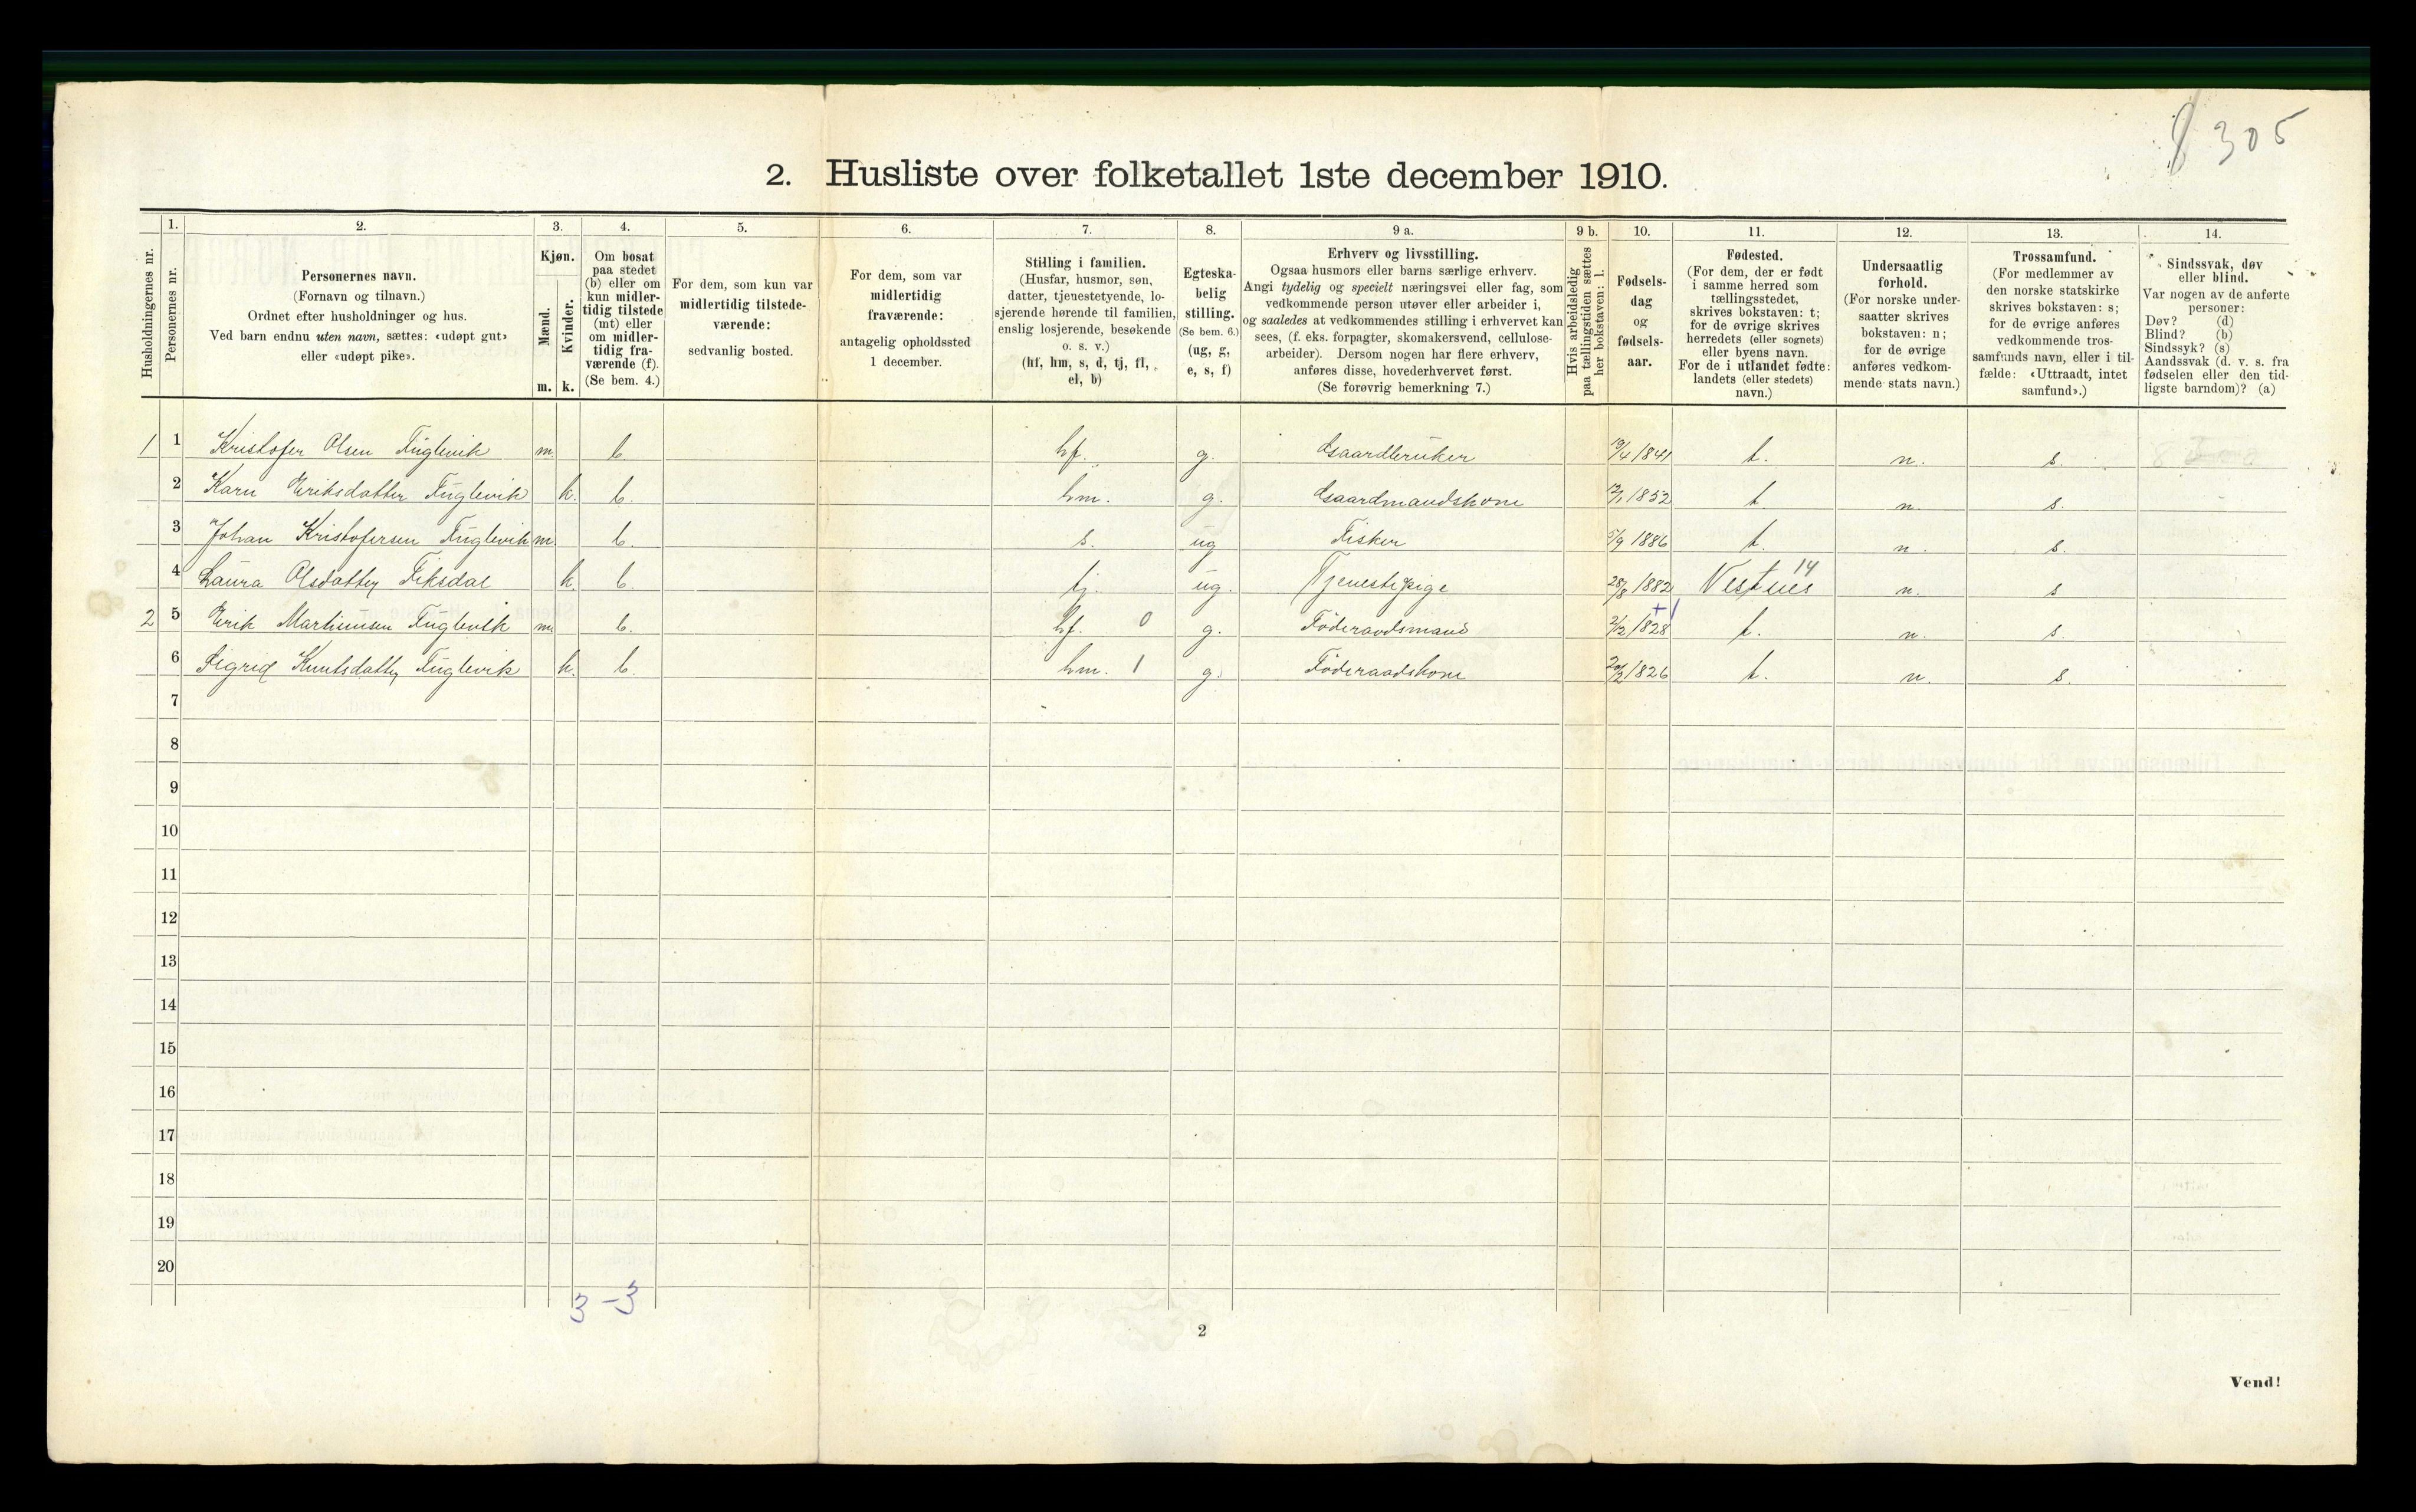 305
2. Husliste over folketallet 1ste december 1910.
Husholdningernes nr.
1.
Personernes nr.
2.
Personernes navn.
(Fornavn og tilnavn.)
Ordnet efter husholdninger og hus.
Ved barn endnu uten navn, sættes: «udøpt gut»
eller «udøpt pike».
3.
Kjøn.
Mænd.
m.
Kvinder.
k.
4.
Om bosat
paa stedet
(b) eller om
kun midler-
tidig tilstede
(mt) eller
om midler-
tidig fra-
værende (f).
(Se bem. 4.)
5.
For dem, som kun var
midlertidig tilstede-
værende:
sedvanlig bosted.
6.
For dem, som var
midlertidig
fraværende:
antagelig opholdssted
1 december.
7.
Stilling i familien.
(Husfar, husmor, søn,
datter, tjenestetyende, lo-
sjerende hørende til familien,
enslig losjerende, besøkende
o. s. v.)
(hf, hm, s, d, tj, fl,
el, b)
8.
Egteska-
belig
stilling.
(Se bem. 6.)
(ug, g,
e, s, f)
9 a.
Erhverv og livsstilling.
Ogsaa husmors eller barns særlige erhverv.
Angi tydelig og specielt næringsvei eller fag, som
vedkommende person utøver eller arbeider i,
og saaledes at vedkommendes stilling i erhvervet kan
sees, (f. eks. forpagter, skomakersvend, cellulose-
arbeider). Dersom nogen har flere erhverv,
anføres disse, hovederhvervet først.
(Se forøvrig bemerkning 7.)
9 b.
Hvis arbeidsledig
paa tællingstiden sættes
her bokstaven: l.
10.
Fødsels-
dag
og
fødsels-
aar.
11.
Fødested.
(For dem, der er født
i samme herred som
tællingsstedet,
skrives bokstaven: t;
for de øvrige skrives
herredets (eller sognets)
eller byens navn.
For de i utlandet fødte:
landets (eller stedets)
navn.)
12.
Undersaatlig
forhold.
(For norske under-
saatter skrives
bokstaven: n;
for de øvrige
anføres vedkom-
mende stats navn.)
13.
Trossamfund.
(For medlemmer av
den norske statskirke
skrives bokstaven: s;
for de øvrige anføres
vedkommende tros-
samfunds navn, eller i til-
fælde: «Uttraadt, intet
samfund».)
14.
Sindssvak, døv
eller blind.
Var nogen av de anførte
personer:
Døv? (d)
Blind? (b)
Sindssyk? (s)
Aandssvak (d. v. s. fra
fødselen eller den tid-
ligste barndom)? (a)
1 1 Kristofer Olsen Fuglevik m. b. hf. g. Gaardbruker 19/4 1841 t. n. s.
2 Karn Eriksdatter Fuglevik k. b. hm. g. Gaardmandskone 1852 t. n. s.
3 Johan Kristofersen Fuglevik m. b. s. ug Fisker 5/9 1886 t. n. s.
4 Laura Olsdatter Fiksdal k. b. tj. ug. Tjenestepige 28/8 1882 Vestnes 14 n. s
2 5 Erik Martinusen Fuglevik m. b. hf. 0 g. Föderaadsmand 2/12 1828 t. n. s.
6 Sigrid Knutsdatter Fuglevik k. b. hm. 1 g. Föderaadskone 1826 t. n. s.
7
8
9
10
11
12
13
14
15
16
17
18
19
20
3 - 3
2
Vend!